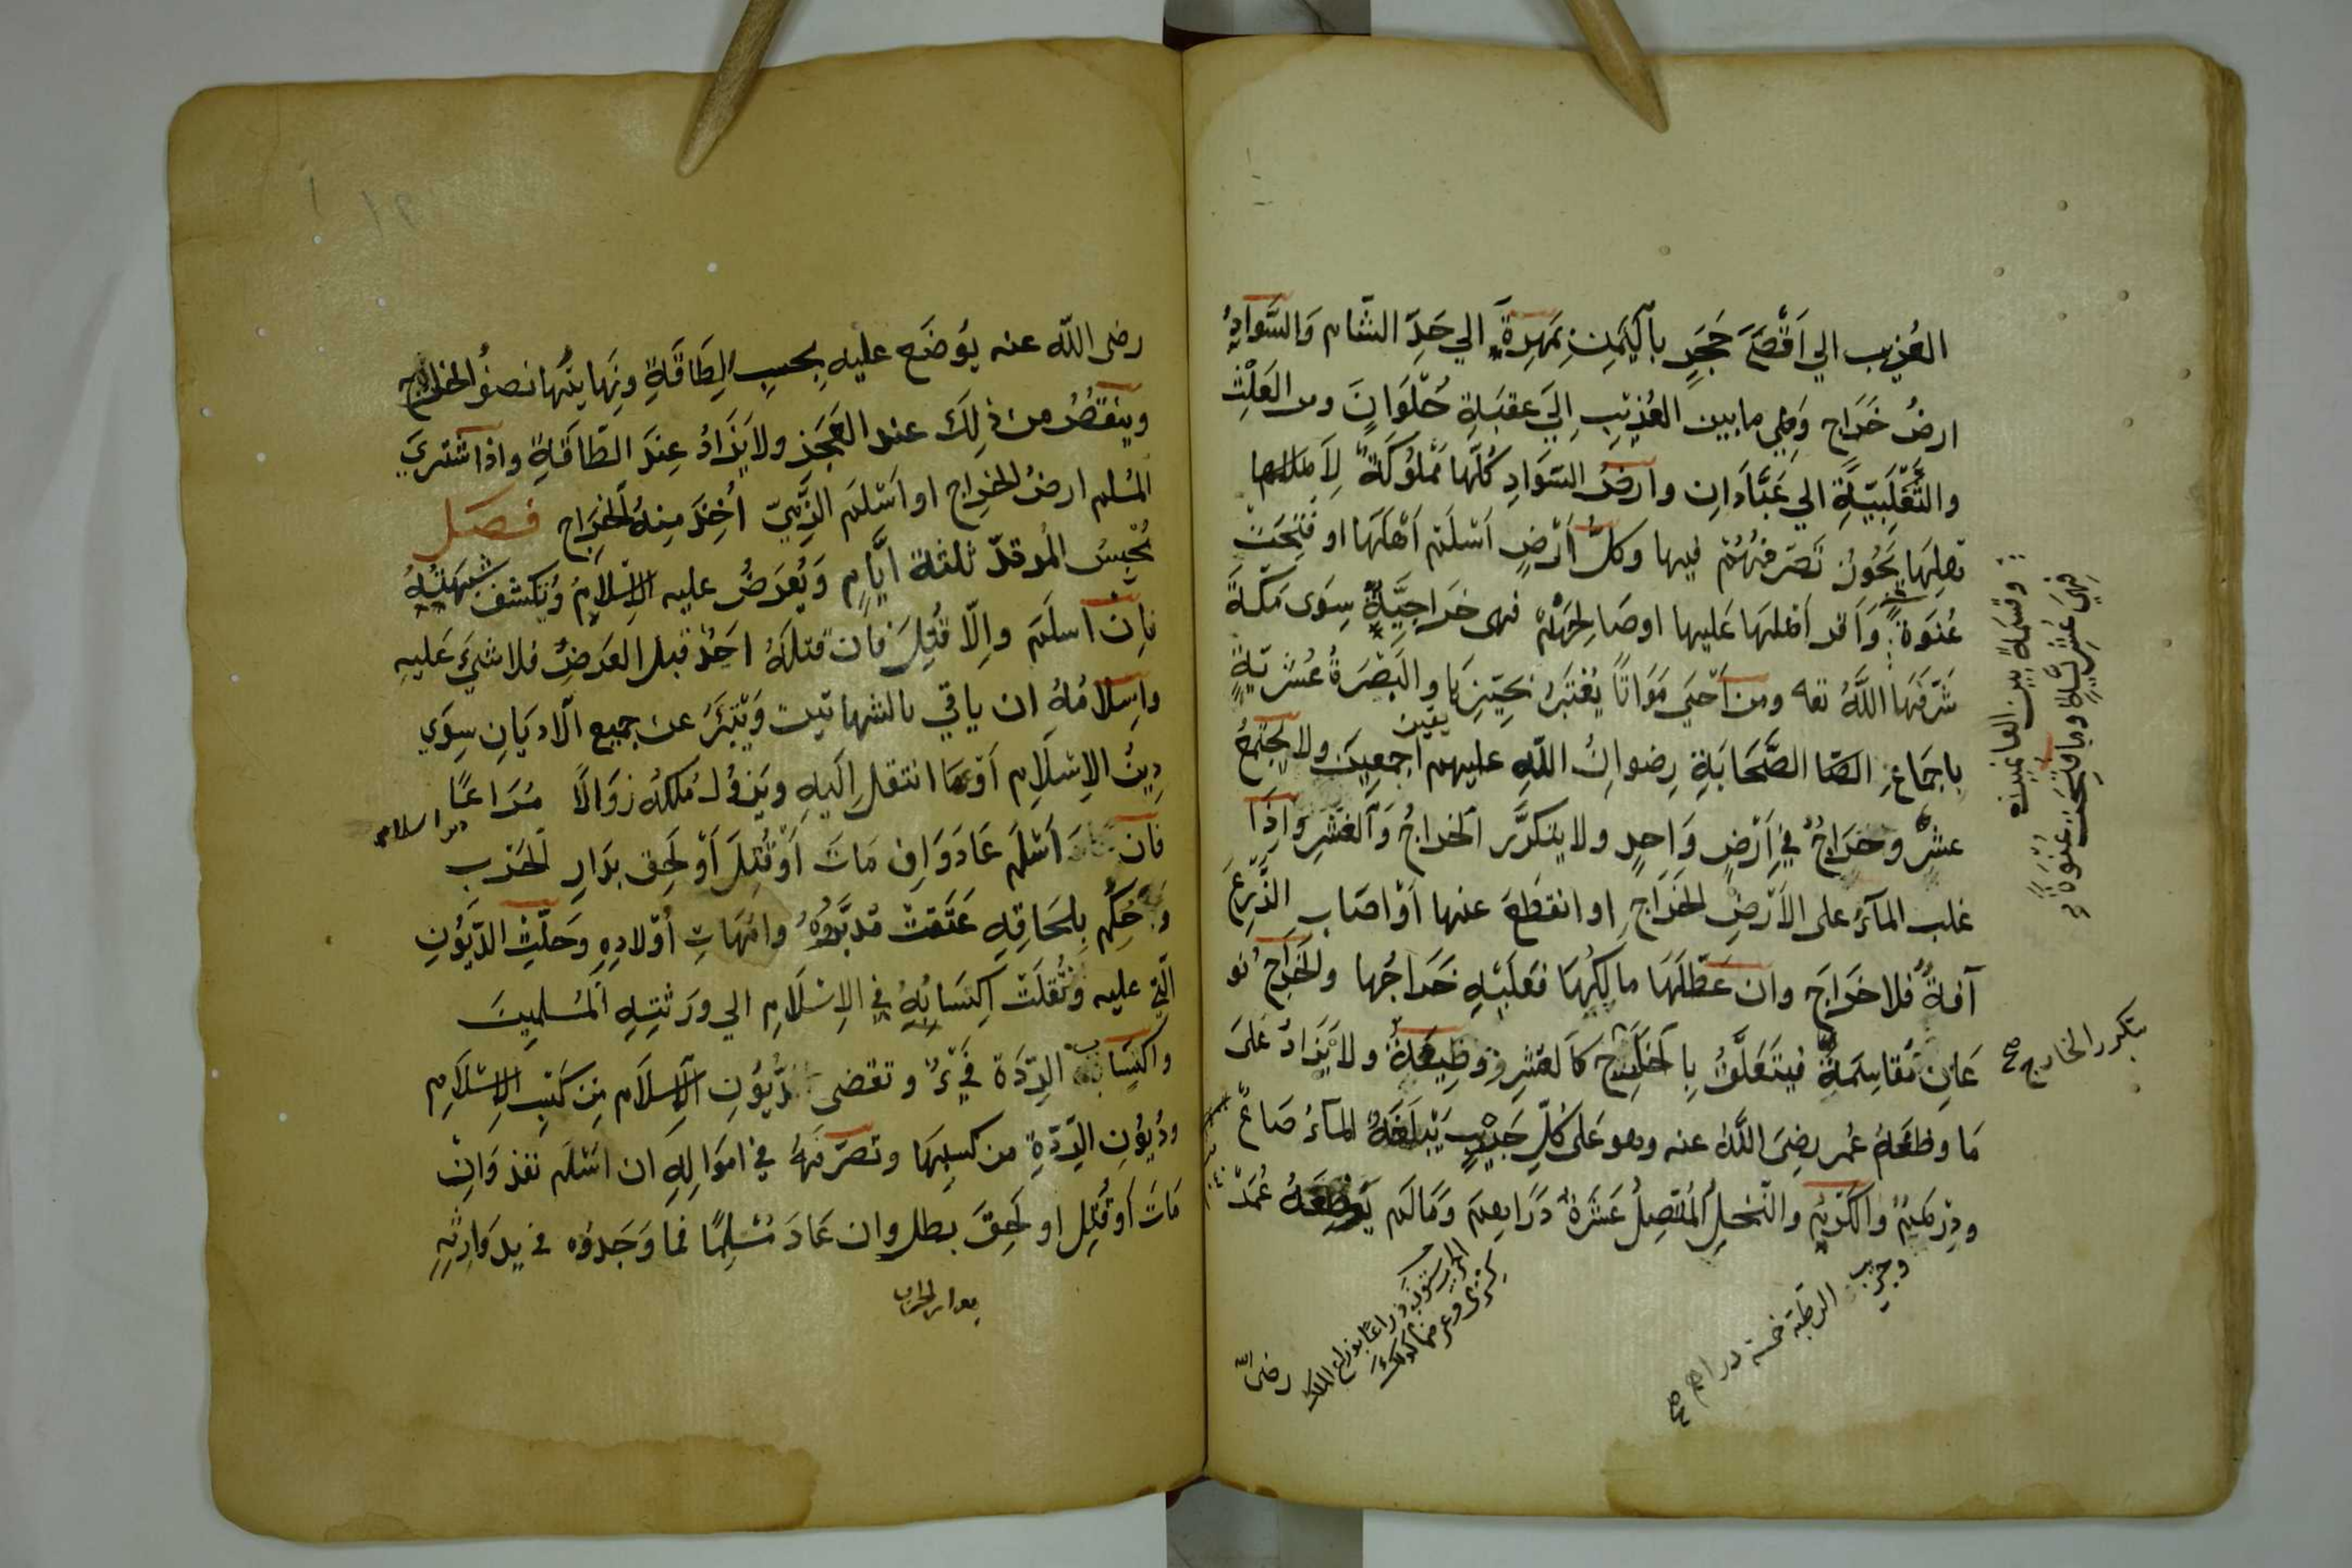 العُذيب الي اَقْصَى حَجَرٍ بِاليَمَنِ بِمَهرَةَ الي حَدِّ الشّام وَالسَّوادُ
ارضُ خَرَاج وَهِي مابين العُذيبِ اِلَى عقبَةِ حُلْوَانَ ومن العَلْثِ
والثَّعْلَبِيّةِ الي عَبَّادَانِ وارضُ السَوَادِ كُلّها مملوكَةٌ لِاَهلها
تصرفهُمْ فيها وكلّ اَرْضٍ اَسْلَمَ اَهْلُهَا او فُتِحَتْ
عُنوَةً وَاُقر اَهلهَا عَليها او صَالحَهُمْ فهى خَراجِيَّةٌ سِوَى مَكةَ
شَرّفَهَا اللَّهُ تعه ومن اَحْيَى مَوَاتًا يُعْتَبَرُ بحَيّزِهَا والبَصْرَةُ عُشْرِيّةٍ
باجمَاعِ الصّا الصَّحَابَةِ رِضوانُ اللّهِ عليهم اجمعِينَ ولا يَجْتَمِعُ
عشرٌ وخَرَاجٌ في اَرْضٍ وَاحدٍ ولا يتكرَّر الخراجُ وَالعُشرِ وَاِذَا
غلب المآءُ على الاَرْضِ الخَرَاجِ او انقَطَعَ عنها اَوْ اصَاب الزَّرعَ
آفةٌ فلا خَرَاجَ وان عَطّلَهَا مالِكُهَا فعَلَيْهِ خَرَاجُها والخَرَاجُ نو
عَانِ مُقاسَمَةٌ فيتَعَلَّقُ بِالخَارِج كَالعُشرِ ووظِيفةٌ ولا يُزَادُ عَلىَ
مَا وظفهُ عُمر رضِىَ اللّهُ عنه وهو عَلى كُلّ جَرِيبٍ يَبلَغهُ المآءُ صَاعٌ
ودِرْهَمٌ والكَرْمِ والنّخلِ المُتّصِلُ عَشَرَةُ دَرَاهِمَ وَمَا لَم يُوظِفهُ عُمَرْ
وقسمةٌ بين الغانمين
فهِيَ عُشرِيّةٍ وما فتحت عنوَةً
يتكرر الخارج صح
وجريب الرطبة خمسة دراهم صح
الجريب ستون ذراعًا بذراع الملك
كسرى وعرضًا كذلك
رضى اللّه
رضى اللّه عنه يُوضَع عليه بِحسبِ الطَاقَةِ ونِهايتُها نصفُ الخارِج
وينقُصُ من ذلِكَ عند العَجْز ولا يُزَادُ عِندَ الطّاقَةِ واذا اشترَي
المُسلم ارضُ الخراج او اَسْلمَ الذّمِّيّ اُخِذَ مِنهُ الخَرَاج فصل
يُحْبسُ المُرتدّ ثلثة اَيَّامٍ وَيُعرَضُ عليه الاِسْلامُ ويُكشفُ شبهَتهُ
فاِنْ اَسلَمَ واِلّا قُتِلَ فان قتلهُ اَحَدٌ قبل العَرضِ فلا شيَ عَليهِ
واِسلامُهُ ان ياتي بالشهادتين ويَتَبَرَّ عن جميع الاَديَانِ سِوَي
دِينُ الاِسْلَامِ اَوْعمَا انتقل اِلَيهِ ويزولُ مُلكهُ زوَالًا مُرَاعًا
فان اَسْلَمَ عَادَ وَاِن مَاتَ اَوْ قُتِلَ اَوْ لَحِق بدَارِ الحَرب
وَحُكِم بلحَاقِهِ عَتَقتْ مُدبَّرُوهُ وامّهَاتِ اَوْلادِهِ وَحَلّتِ الدّيُونِ
الّتي عليه ونُقلَتْ اكتسَابُهُ في الاِسْلَامِ الي ورَثتِهِ المُسلِمِينَ
واكتِسَابُ الرّدَّة فَيْءٌ وتقضى دُيُونِ الاِسلَام مِن كَسْبِ الاِسْلَامِ
ودُيُونِ الرّدّةِ من كسبِهَا وتصرّفهُ في اموَالِهِ ان اسْلَم نفذ وَاِنْ
مَاتَ اَو قُتِل او لَحِقَ بطل وان عَادَ مُسْلِمًا فمَا وَجَدوُه في يدِ وَارِثِهِ
بدار الحرب